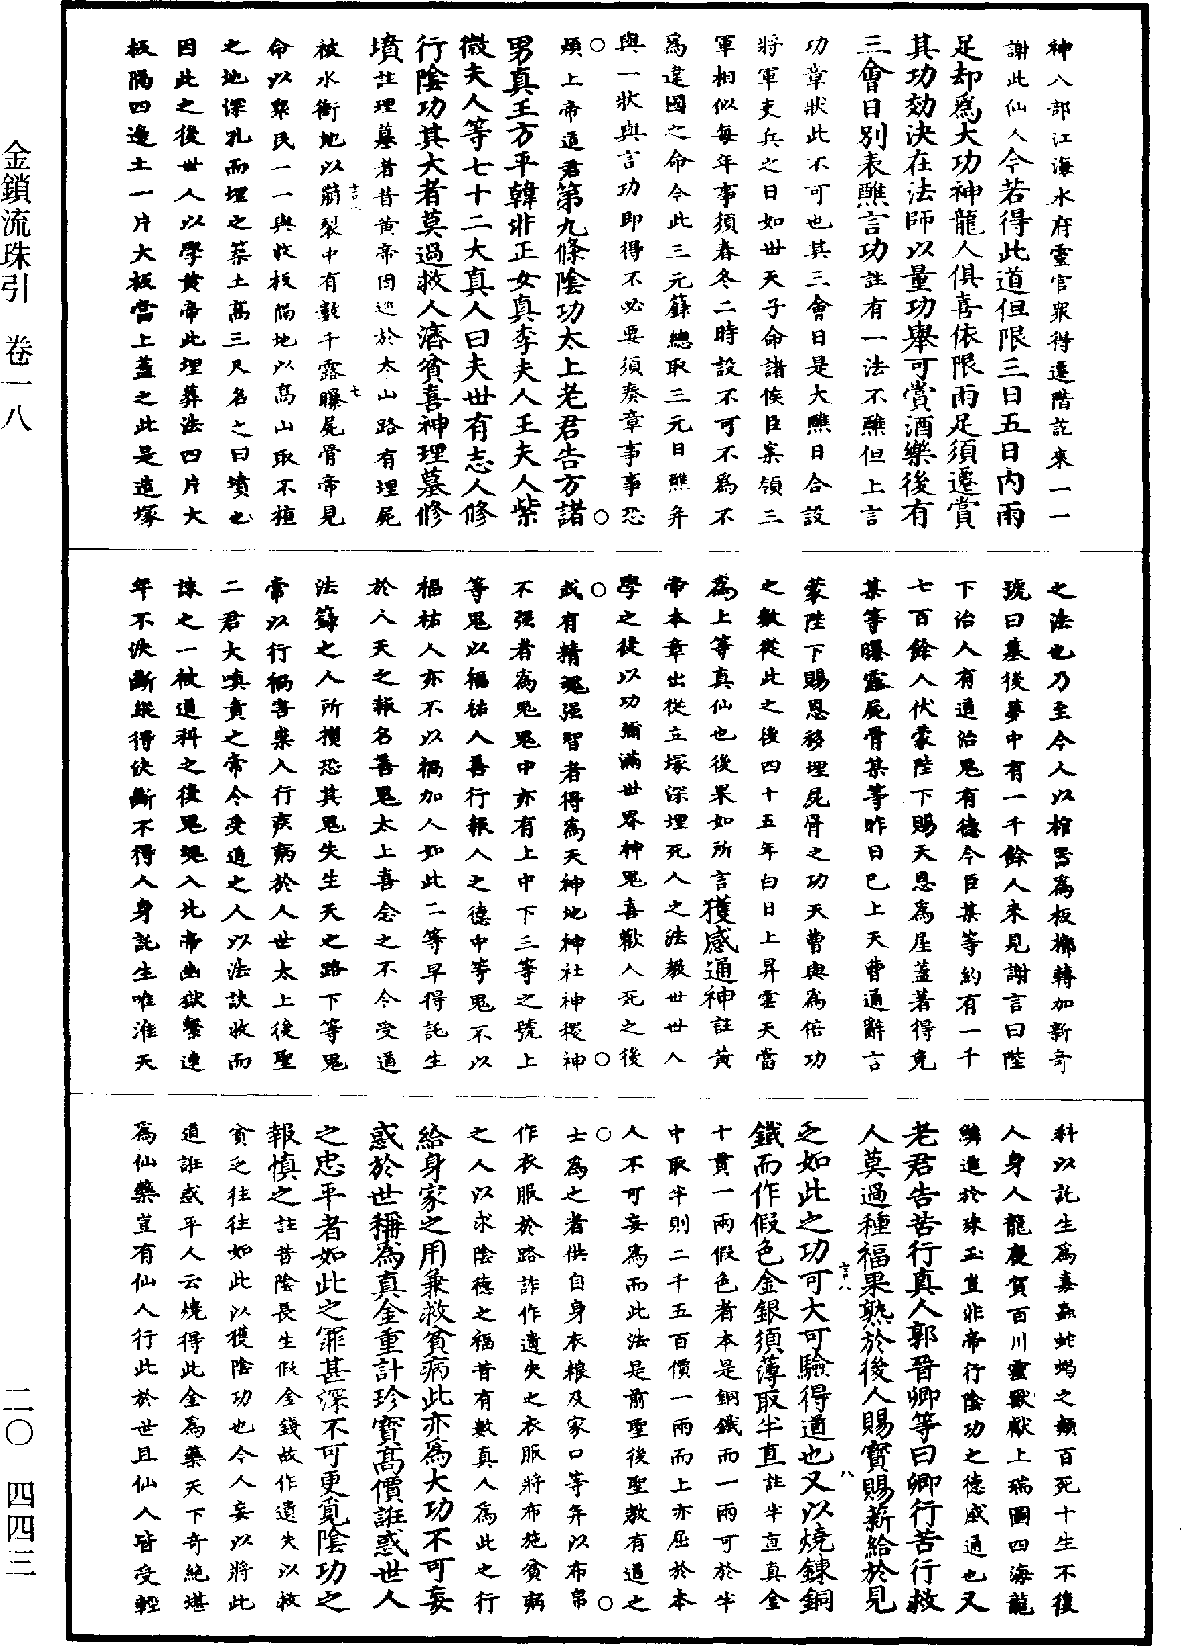 神八部江海水府靈官眾得遷階訖來一一
謝此仙人今若得此道但限三日五日內雨
足却為大功神龍人俱喜依限雨足須遷賞
其功效決在法師以量功舉可賞酒樂後有
三會日別表醮言功註有一法不醮但上言
功章狀此不可也其三會日是大醮日合設
將軍吏兵之日如世天子命諸侯臣案領三
軍相似每年事須春冬二時設不可不為不
為違國之命令此三元籙總取三元日醮并
與一狀與言功即得不必要須奏章事事恐
煩上帝道君第九條陰功太上老君告方諸
男真王方平韓非正女真李夫人王夫人紫
微夫人等七十二大真人曰夫世有志人修
行陰功其大者莫過救人濟貧喜神理墓修
墳註理墓者昔黃帝因巡於太山路有理屍
被水衝地以崩裂中有數千露曝屍骨帝見
命以眾民一一與收板隔地以高山取不植
之地深孔而埋之築土高三尺名之曰墳也
因此之後世人以學黃帝此埋葬法四片大
板隔四邊土一片大板當上蓋之此是造塚
之法也乃至今人以棺器為板槨轉加新奇
號曰墓後夢中有一千餘人來見謝言曰陛
下治人有道治鬼有德今臣某等約有一千
七百餘人伏蒙陛下賜天恩為屋蓋著得免
某等曝露屍骨某等昨日已上天曹通辭言
蒙陛下賜恩移埋屍骨之功天曹與為倍功
之數從此之後四十五年白日上昇雲天當
為上等真仙也後果如所言獲感通神註黃
帝本章出從立塚深埋死人之法教世世人
學之徒以功彌滿世界神鬼喜歡人死之後
或有精魂強智者得為天神地神社神稷神
不強者為鬼鬼中亦有上中下三等之號上
等鬼以福祐人善行報人之德中等鬼不以
福祐人亦不以禍加人如此二等早得託生
於人天之報名善鬼太上喜念之不令受道
法籙之人所攪恐其鬼失生天之路下等鬼
常以行禍害眾入行疾病於人世太上後聖
二君大嗔責之常令受道之人以法訣收而
誅之一被道科之後鬼魂入北帝幽獄繫連
年不決斷縱得決斷不得人身託生唯准天
科以託生為畜蟲蛇蝎之類百死十生不復
人身人龍慶賀百川靈獸獻上瑞圖四海龍
驎進於珠玉豈非帝行陰功之德感通也又
老君告苦行真人郭晉卿等曰卿行苦行救
人莫過種福果熟於後人賜寶賜薪給於見
乏如此之功可大可驗得道也又以燒鍊銅
鐵而作假色金銀須薄取半直註半直真金
十貫一兩假色者本是銅鐵而一兩可於半
中取半則二千五百價一兩而上亦屈於本
人不可妄為而此法是前聖後聖教有道之
士為之者供自身衣糧及家口等并以布帛
作衣服於路詐作遺失之衣服將布施貧窮
之人以求陰德之福昔有數真人為此之行
給身家之用兼救貧病此亦為大功不可妄
惑於世稱為真金重計珍寶高價誑惑世人
之忠平者如此之罪甚深不可更覓陰功之
報慎之註昔陰長生假金錢故作遺失以救
貧乏往往如此以獲陰功也今人妄以將此
道誑惑平人云燒得此金為藥天下奇絕堪
為仙藥豈有仙人行此於世且仙人皆受輕
言八
七
言八
八
金鎖流珠引 卷一八
二〇 四四三